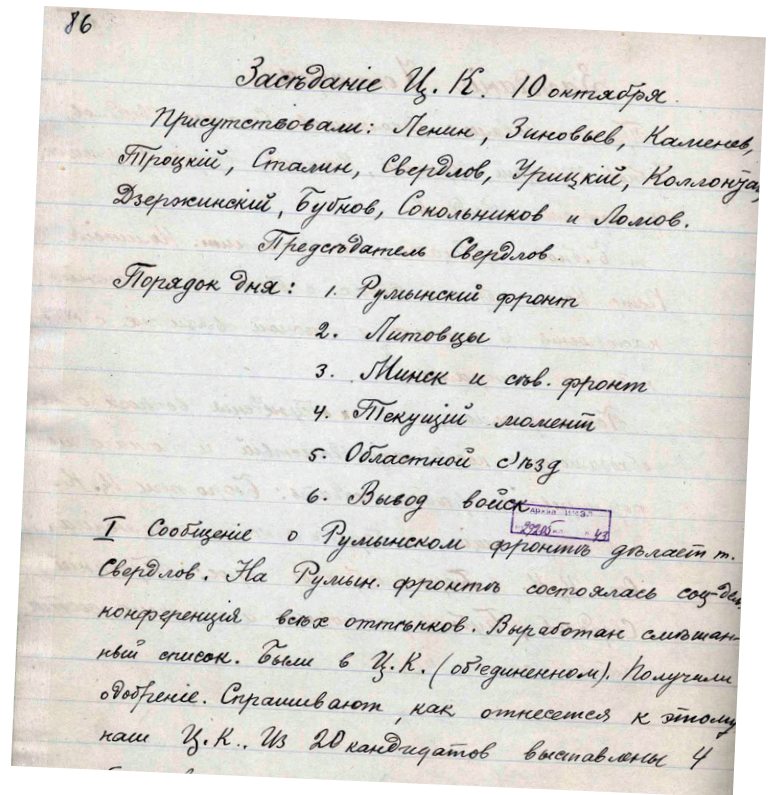 86
Засѣданіе Ц. К. 10 октября.
Присутствовали: Ленин, Зиновьев, Каменев,
Троцкій, Сталин, Свердлов, Урицкій, Коллонтай,
Дзержинскій, Бубнов, Сокольников и Ломов.
Предсѣдатель Свердлов
Порядок дня: 1. Румынскій фронт
2. Литовцы
3. Минск и сѣв. фронт
4. Текущій момент
5. Областной с'ѣзд
6. Вывод войск
I Сообщеніе о Румынском фронтѣ дѣлает т.
Свердлов. На Румын. фронтѣ состоялась соц-дем.
конференція всѣх оттѣнков. Выработан смѣшан-
ный список. Были в Ц.К. (об'единенном). Получили
одобреніе. Спрашивают, как отнесется к этому
наш Ц.К.. Из 20 кандидатов выставлены 4